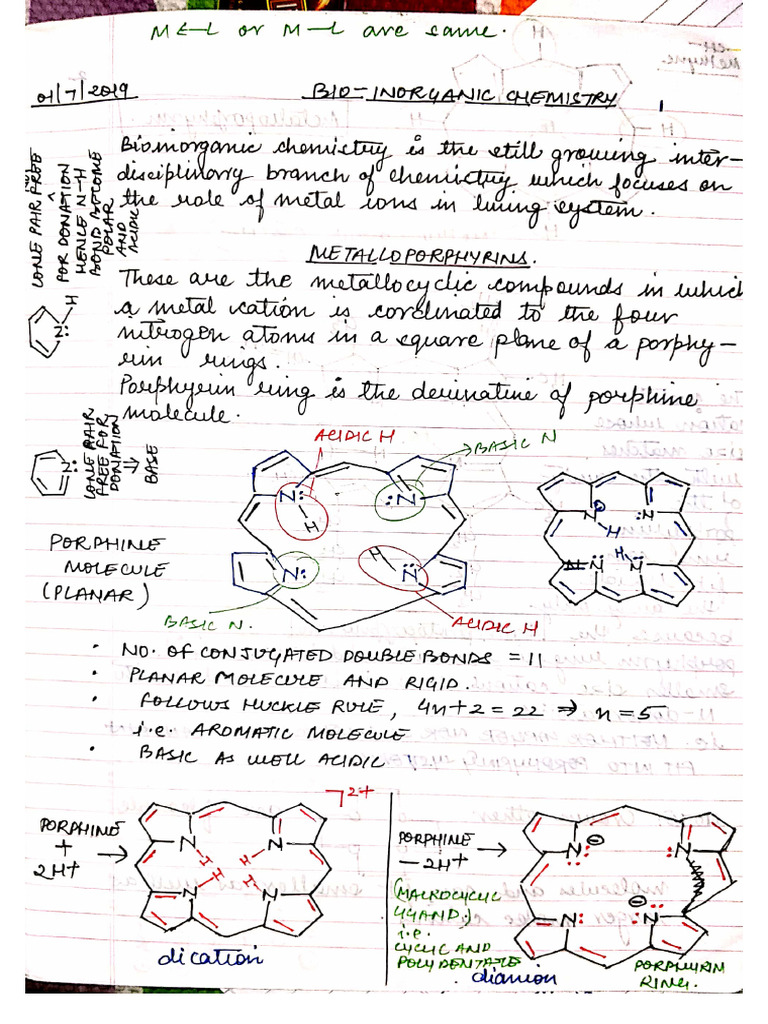 M←L or M–L are same.
01/7/2019
BIO-INORGANIC CHEMISTRY
1
Bioinorganic chemistry is the still growing inter-
disciplinary branch of chemistry which focuses on
the role of metal ions in living system.
LONE PAIR FREE
FOR DONATION
HENCE N-H
BOND BECOME
POLAR
AND
ACIDIC
METALLOPORPHYRINS.
These are the metallocyclic compounds in which
a metal cation is cordinated to the four
nitrogen atoms in a square plane of a porphy-
rin rings.
Porphyrin ring is the derivative of porphine
molecule.
H
N:
LONE PAIR
FREE FOR
DONATION
⇒ BASE
N:
ACIDIC H
BASIC N
N: :N
H
H
N: N
PORPHINE
MOLECULE
(PLANAR)
BASIC N.
ACIDIC H
N :N
H
H
N N
· NO. OF CONJUGATED DOUBLE BONDS = 11
· PLANAR MOLECULE AND RIGID.
· FOLLOWS HUCKLE RULE, 4n+2 = 22 ⇒ n=5
i.e. AROMATIC MOLECULE
· BASIC AS WELL ACIDIC
PORPHINE
+
2H+
→
2+
N N
H H
H H
N N
dication
PORPHINE
-2H+
→
(MACROCYCLIC
LIGAND)
i.e.
CYCLIC AND
POLYDENTATE
N N
N N
dianion
PORPHYRIN
RING.